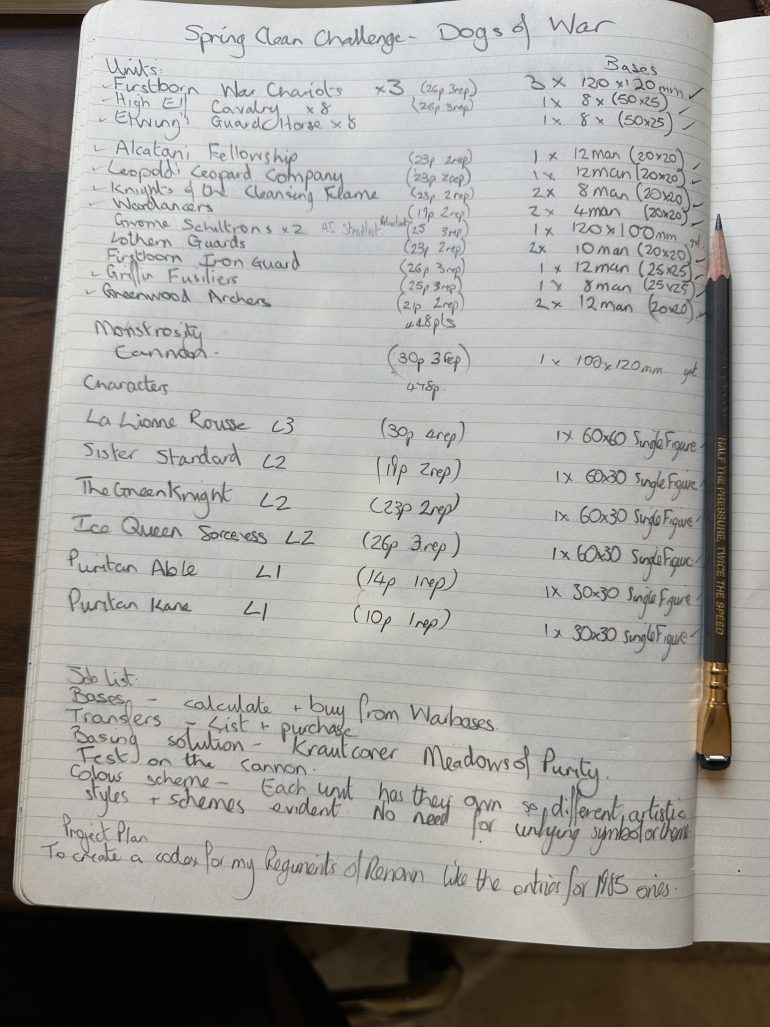 Spring Clean Challenge - Dogs of War
Units: Bases
Firstborn War Chariots x3 (26p 3rep) 3 x 120x120mm ✓
High Elf Cavalry x8 (26p 3rep) 1 x 8 x (50x25) ✓
Guard Horse x8 1 x 8 x (50x25) ✓
Alcatani Fellowship (23p 2rep) 1 x 12man (20x20) ✓
Leopold's Leopard Company (23p 2rep) 1x 12man (20x20) ✓
Knights of the Cleansing Flame (23p 2rep) 2x 8man (20x20) ✓
Wardancers (19p 2rep) 2x 4man (20x20) ✓
Gnome x2 (25 3rep) 1x 120x100mm got
Lothern Guards (23p 2rep) 2x 10man (20x20) ✓
Firstborn Iron Guard (26p 3rep) 1 x 12man (25x25) ✓
Griffin Fusiliers (25p 3rep) 1 x 8man (25x25) ✓
Greenwood Archers (21p 2rep) 2x 12man (20x20) ✓
448pts
Monstrosity
Cannon. (30p 3rep) 1 x 100x120mm got
478p.
Characters
La Lionne Rousse L3 (30p 4rep) 1x 60x60 Single Figure ✓
Sister Standard L2 (19p 2rep) 1x 60x30 Single Figure ✓
The Green Knight L2 (23p 2rep) 1x 60x30 Single Figure ✓
Ice Queen Sorceress L2 (26p 3rep) 1x 60x30 Single Figure ✓
Puritan Able L1 (14p 1rep) 1x 30x30 Single Figure ✓
Puritan Kane L1 (10p 1rep) 1x 30x30 Single Figure ✓
Job List:
Bases - calculate + buy from Warbases.
Transfers - List + purchase
Basing solution - Krautcover Meadows of Purity.
Test on the cannon.
Colour scheme - Each unit has they own so, different, artistic
styles + schemes evident. No need for unifying symbol or theme.
Project Plan
To create a codex for my Regiments of Renown like the entries for 1985 ones.
HALF THE PRESSURE, TWICE THE SPEED